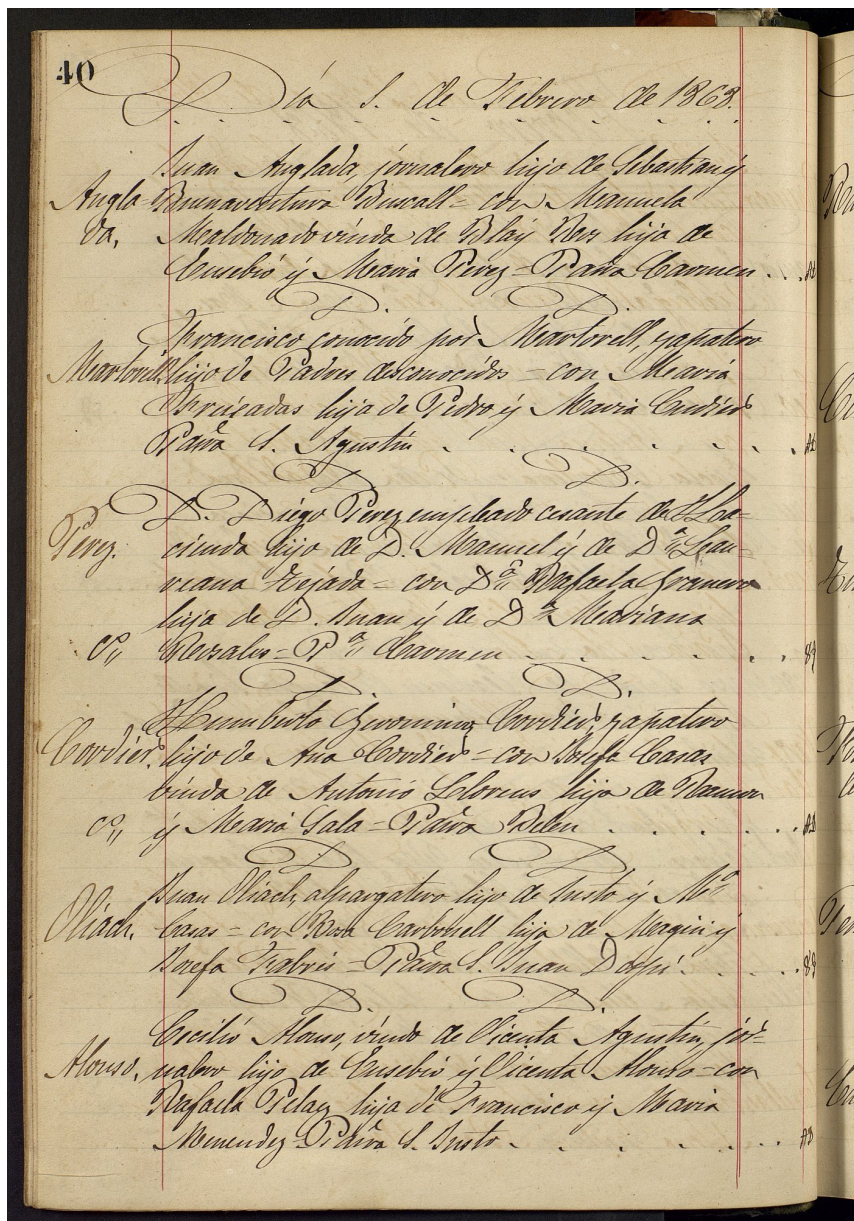 40
Día 5. de Febrero de 1868.
Juan Anglada, jornalero hijo de Sebastian y
Angla- Buenaventura Buscall = con Manuela
da, Maldonado viuda de Blay Ros hija de
Eusebio y Maria Perez = Parra Carmen
Francisco conocido por Martorell, zapatero
Martorell, hijo de Padres desconocidos = con Maria
Bruigadas hija de Pedro y Maria
Parra S. Agustin
D. Diego Perez, empleado cesante de Ha-
Perez. cienda hijo de D. Manuel y de Dª
Tejada = con Dª Rafaela Granero
hija de D. Juan y de Dª Mariana
Cº Rosales = Pª Carmen
Humberto Geronimo Cordier, zapatero
Cordier, hijo de Ana Cordier = con Josefa Casas
viuda de Antonio Llorens hija de Ramon
Cº y Maria Sala = Parra Belen
Juan Oliach, alpargatero hijo de Justo y Mª
Oliach, Casas = con Rosa Carbonell hija de Magin y
Josefa Fabres = Parra S. Juan
Cecilio Alonso, viudo de Vicenta Agustin, jor-
Alonso, nalero hijo de Eusebio y Vicenta Alonso = con
Rafaela Pelaez hija de Francisco y Maria
Menendez = Parra S. Justo